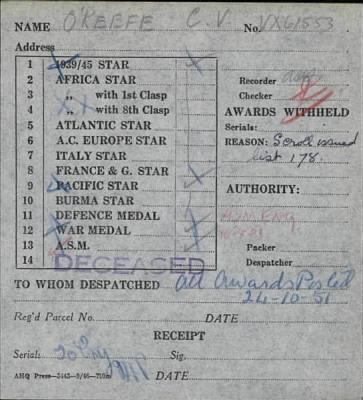 NAME O'KEEFE C. V. No. VX61553
Address
1 1939/45 STAR
2 AFRICA STAR
3 ,, with 1st Clasp
4 ,, with 8th Clasp
5 ATLANTIC STAR
6 A.C. EUROPE STAR
7 ITALY STAR
8 FRANCE & G. STAR
9 PACIFIC STAR
10 BURMA STAR
11 DEFENCE MEDAL
12 WAR MEDAL
13 A.S.M.
14 DECEASED
Recorder
Checker
AWARDS WITHHELD
Serials:
REASON: Scroll issued
list 178.
AUTHORITY:
Packer
Despatcher
TO WHOM DESPATCHED All Awards Posted
24-10-51
Reg'd Parcel No. DATE
RECEIPT
Serials Sig.
AHQ Press—3443—9/46—710m DATE